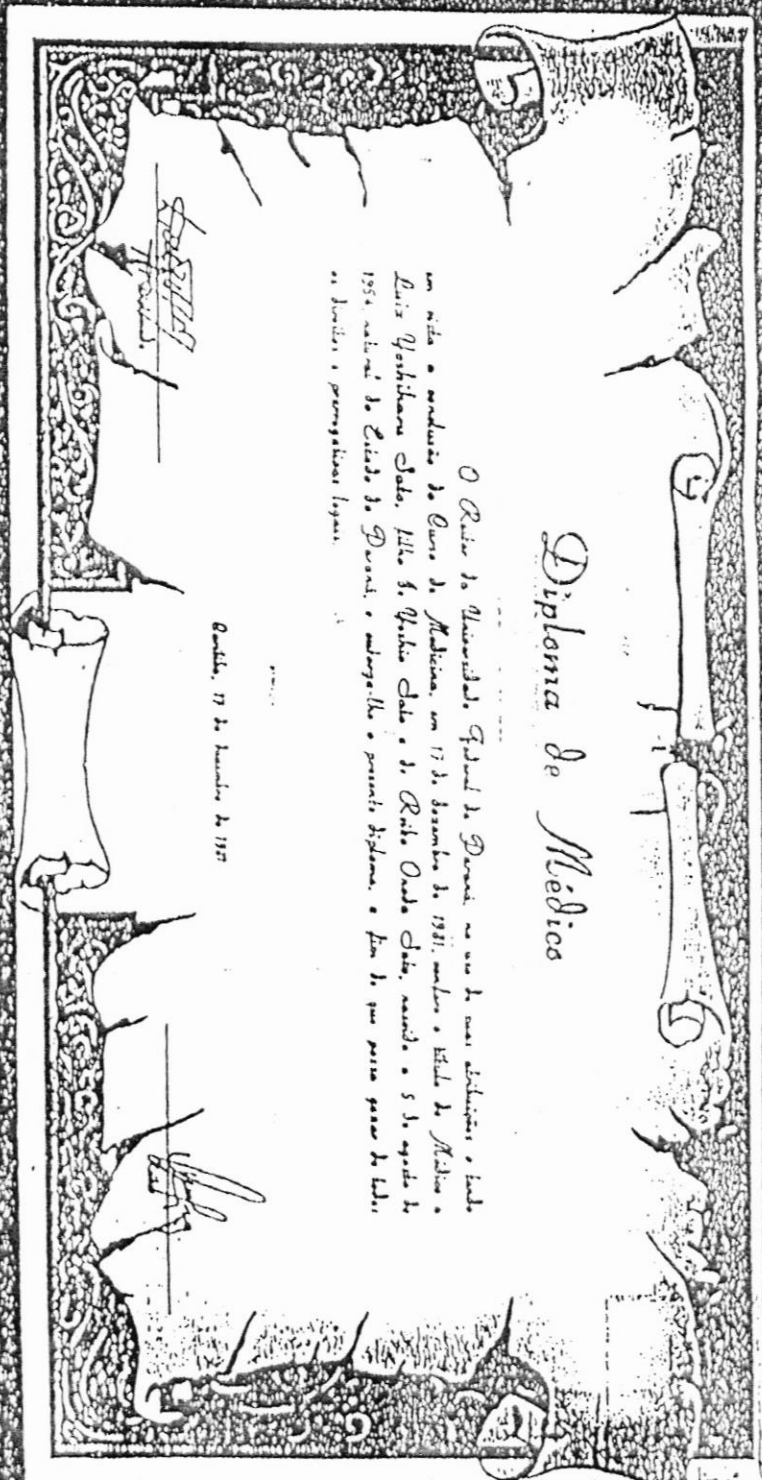 Diploma de Médico
O Reitor da Universidade Federal do Paraná, no uso de suas atribuições e tendo
em vista a conclusão do Curso de Medicina, em 17 de dezembro de 1981, confere o título de Médico a
Luiz Yoshiharu Sato, filho de Yoshio Sato e de Onda Sato, nascido a 5 de agosto de
1954, natural do Estado do Paraná, e outorga-lhe o presente diploma, a fim de que possa gozar de todos
os direitos e prerrogativas legais.
Curitiba, 17 de dezembro de